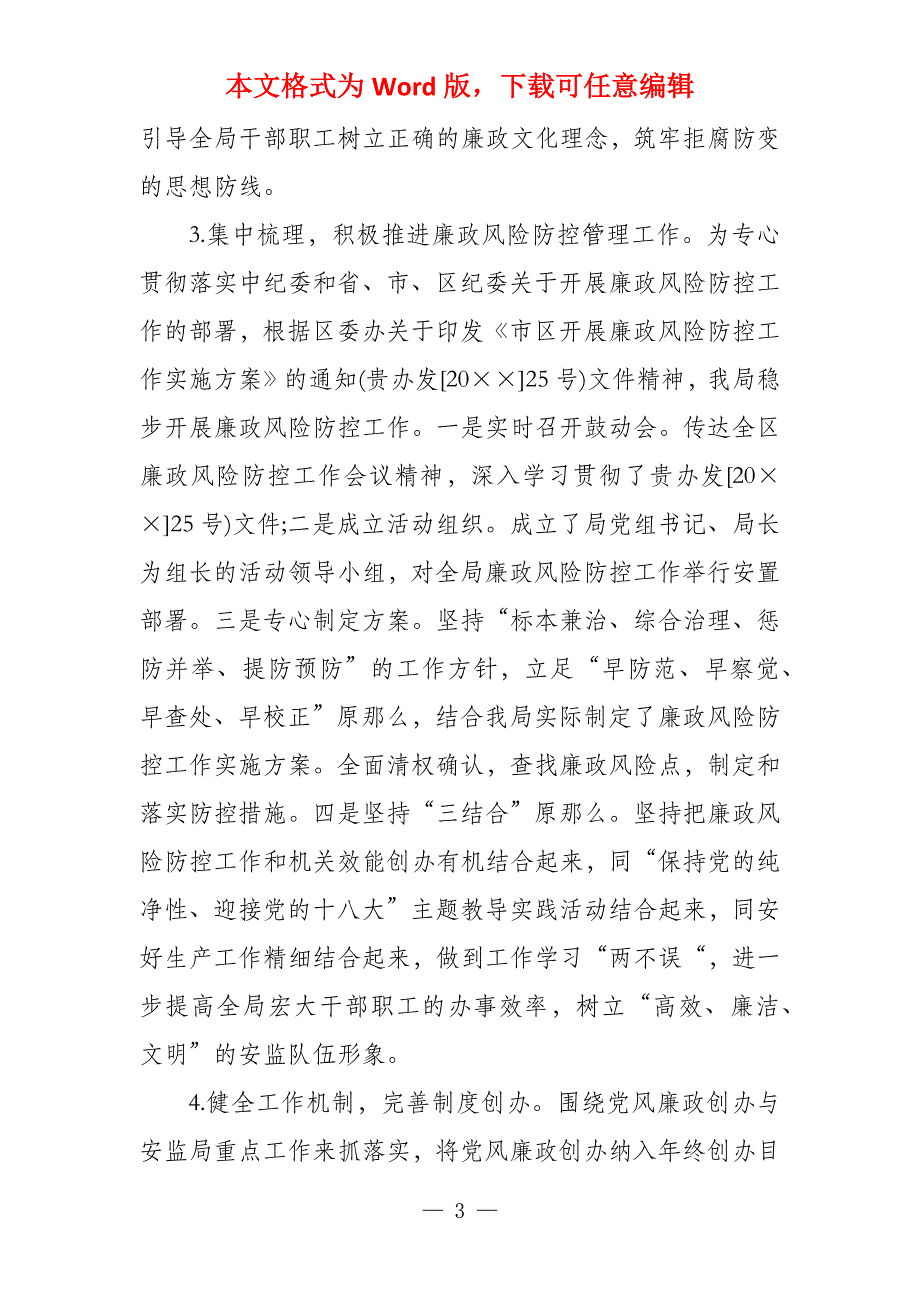 本文格式为 Word 版，下载可任意编辑
引导全局干部职工树立正确的廉政文化理念，筑牢拒腐防变
的思想防线。
3.集中梳理，积极推进廉政风险防控管理工作。为专心
贯彻落实中纪委和省、市、区纪委关于开展廉政风险防控工
作的部署，根据区委办关于印发《市区开展廉政风险防控工
作实施方案》的通知(贵办发[20××]25 号)文件精神，我局稳
步开展廉政风险防控工作。一是实时召开鼓动会。传达全区
廉政风险防控工作会议精神，深入学习贯彻了贵办发[20×
×]25 号)文件;二是成立活动组织。成立了局党组书记、局长
为组长的活动领导小组，对全局廉政风险防控工作举行安置
部署。三是专心制定方案。坚持“标本兼治、综合治理、惩
防并举、提防预防”的工作方针，立足“早防范、早察觉、
早查处、早校正”原那么，结合我局实际制定了廉政风险防
控工作实施方案。全面清权确认，查找廉政风险点，制定和
落实防控措施。四是坚持“三结合”原那么。坚持把廉政风
险防控工作和机关效能创办有机结合起来，同“保持党的纯
净性、迎接党的十八大”主题教导实践活动结合起来，同安
好生产工作精细结合起来，做到工作学习“两不误“，进一
步提高全局宏大干部职工的办事效率，树立“高效、廉洁、
文明”的安监队伍形象。
4.健全工作机制，完善制度创办。围绕党风廉政创办与
安监局重点工作来抓落实，将党风廉政创办纳入年终创办目
— 3 —